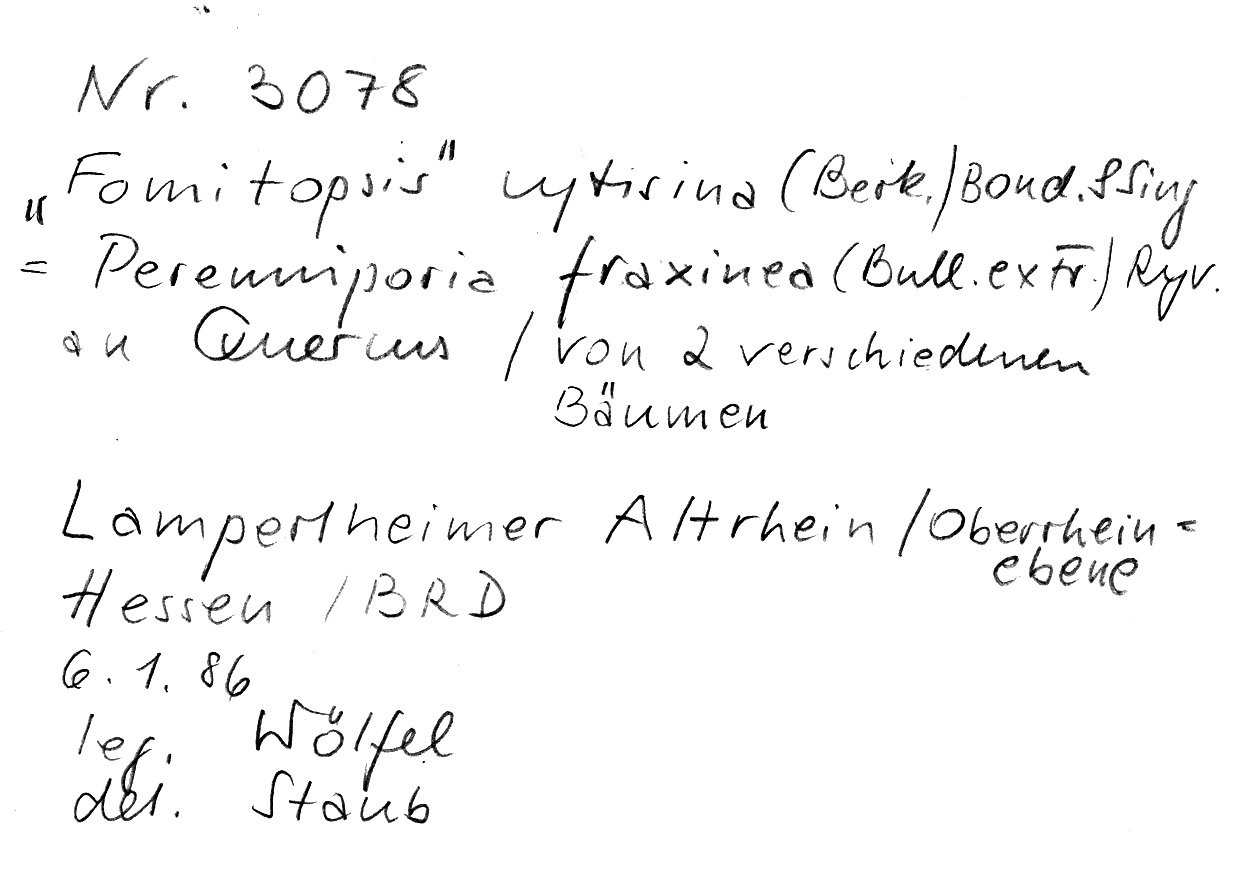 Nr. 3078
„Fomitopsis" cytisina (Berk.) Bond. & Sing
= Perenniporia fraxinea (Bull. ex Fr.) Ryv.
an Quercus / von 2 verschiedenen
Bäumen
Lampertheimer Altrhein / Oberrhein=
ebene
Hessen / BRD
6. 1. 86
leg. Wölfel
det. Staub